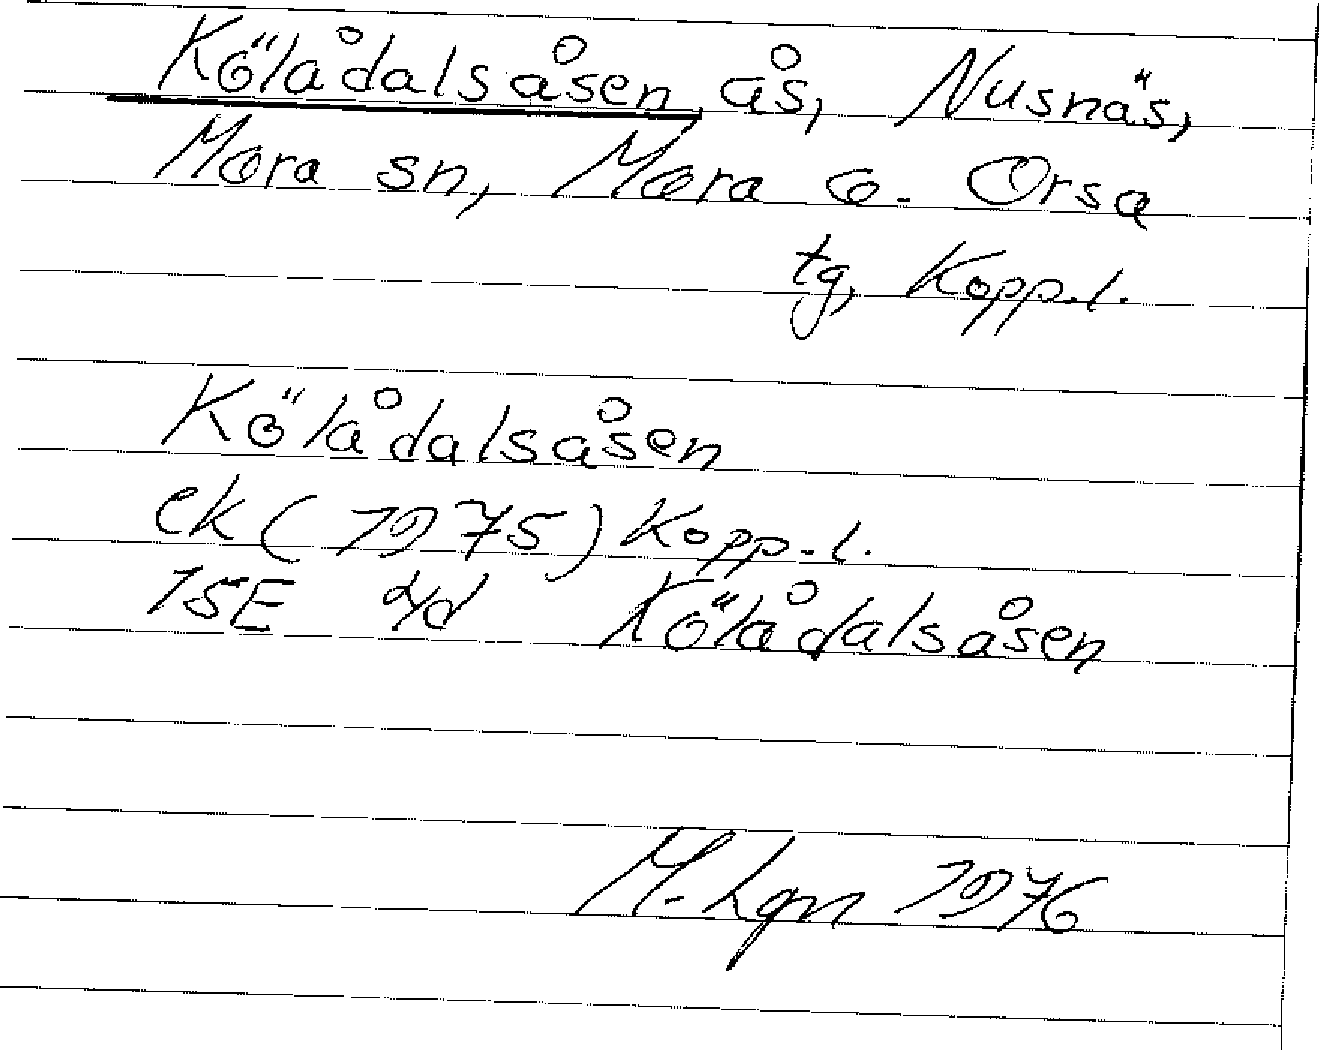 Kölådalsåsen ås, Nusnäs,
Mora sn, Mora o. Orsa
tg, Kopp.l.
Kölådalsåsen
ek (1975) Kopp.l.
15E 4d Kölådalsåsen
M. Lgn 1976